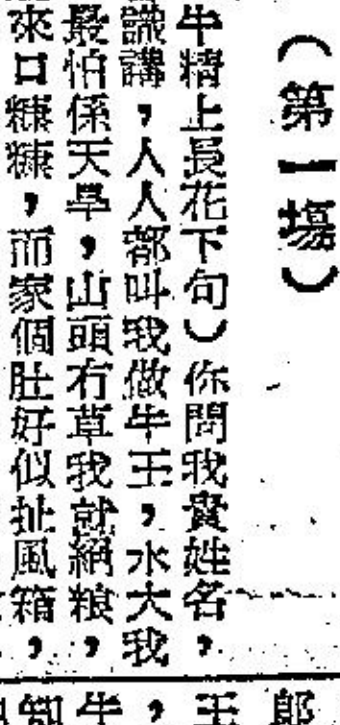 （第一塲）
牛精上長花下句）你問我貴姓名，
識講，人人都叫我做牛王，水大我
最怕係天旱，山頭冇草我就絕粮，
來口糠糠，而家個肚好似扯風箱，